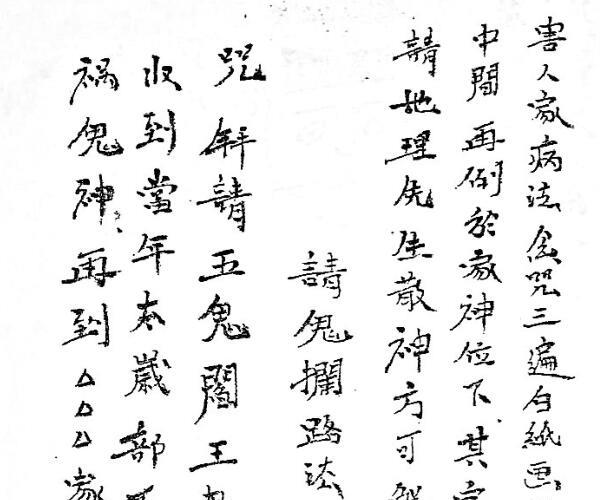 害人家病法念咒三遍白紙画
中間再倒於家神位下其家
請地理先生散神方可
請鬼攔路法
咒解請五鬼閻王
收到當年太歲部
禍鬼神再到△△△家